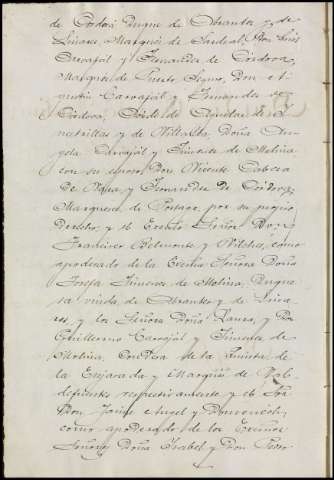 de Córdova Duque de Abrantes y de
Linares Marqués de Sardoal, Don Luis
Carvajal y Fernandez de Córdova,
Marqués de Puerto Seguro, Don
Carvajal y Fernandez de
Córdova, Conde de Aguilar de
Inestrillas y de Villalba Doña An-
gela Carvajal y Jimenez de Molina
con su esposo Don Vicente Cabeza
de Vaca y Fernandez de Cordova,
Marqueses de Portago, por su propio
derecho, y el Excmo Señor Don
Francisco Belmonte y Vilches, como
apoderado de la Excma Señora Doña
Josefa Jimenez de Molina, Duque-
sa viuda de Abrantes y de Lina-
res, y los Señores Doña y Don
Guillermo Carvajal y Jimenez de
Molina, Condesa de la Quinta de
la Enjarada y Marqués de Val-
defuentes respectivamente y el Sor
Don Jaime Angel y
como apoderado de los Excmos
Señores Doña Isabel y Don Pedro